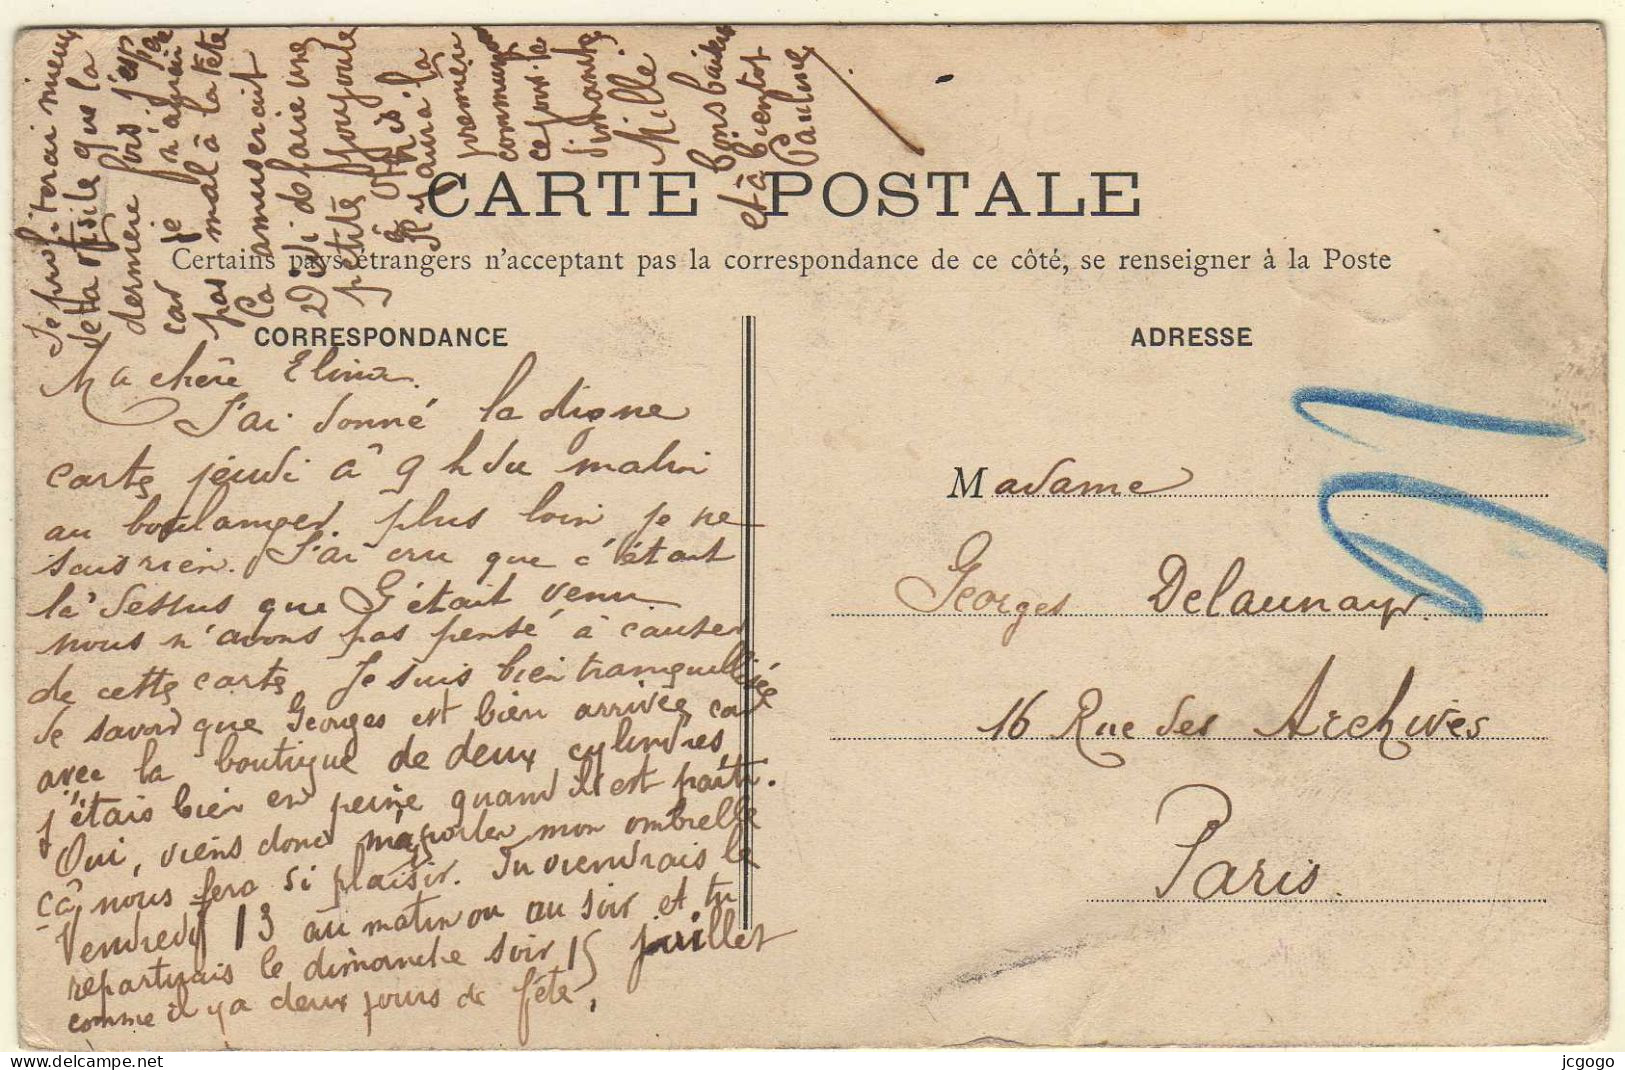 CARTE POSTALE
Certains pays étrangers n'acceptent pas la correspondance de ce côté, se renseigner à la Poste
CORRESPONDANCE
ADRESSE
Ma chère Elina.
J'ai donné la digne
carte jeudi à 9 h du matin
au boulanger. plus loin je ne
sais rien. J'ai cru que c'était
là dessus que G. était venu.
nous n'avons pas pensé à causer
de cette carte Je suis bien tranquillisée
de savoir que Georges est bien arrivée car
avec la boutique de deux cylindres,
j'étais bien en peine quand il est parti.
Oui, viens donc m'apporter mon ombrelle
çà nous fera si plaisir. Tu viendrais le
Vendredi 13 au matin ou au soir et tu
repartirais le dimanche soir 15 juillet
comme il y a deux jours de fête,
Je profiterai mieux
de ta visite que la
dernière fois j'espère
car je n'aurai
pas mal à la tête
Ca amuserait
Didi de faire une
petite
à Othis. la
Il y aura la
première
communion
ce jour-là
dimanche
Mille
bons baisers
et à bientôt
Pauline
Madame
Georges Delaunay.
16 Rue des Archives
Paris.
jcgogo